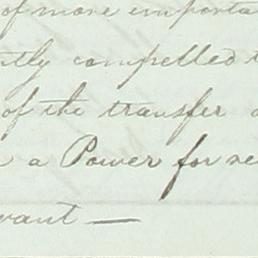 of more importa
tly compelled t
of the transfer
a Power for se
vant —